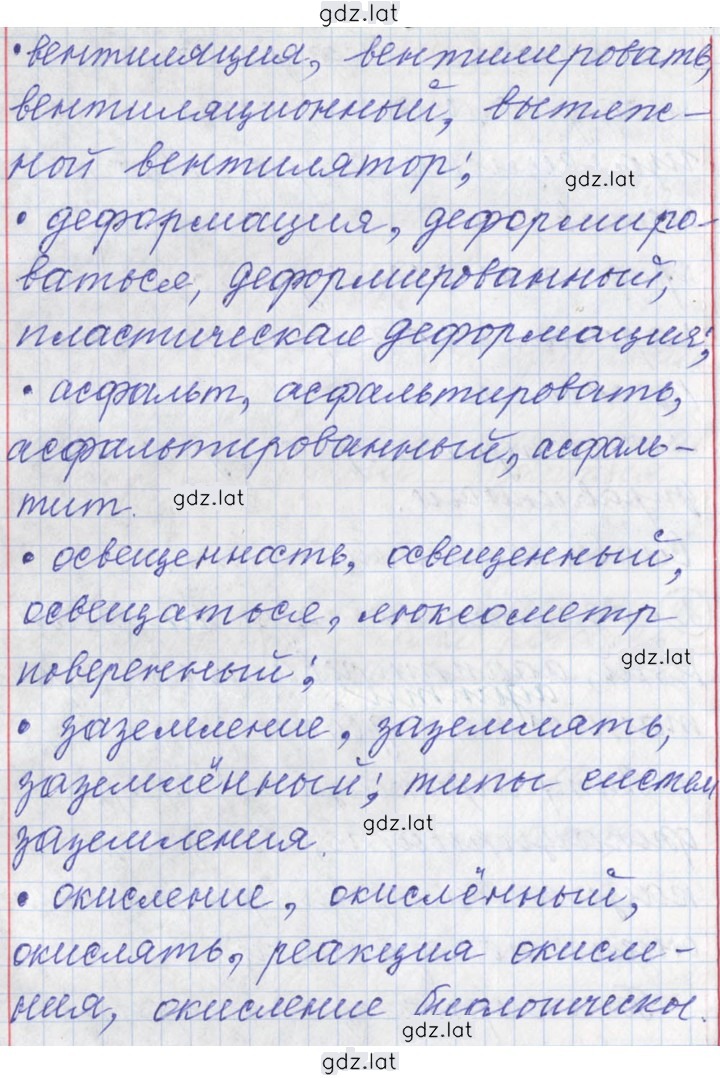 gdz.lat
• вентиляция, вентилировать,
вентиляционный, вытяж-
ной вентилятор;
gdz.lat
• деформация, деформиро-
ваться, деформированный,
пластическая деформация;
• асфальт, асфальтировать,
асфальтированный, асфаль-
тит.
gdz.lat
• освещенность, освещенный,
освещаться, люксометр
gdz.lat
поверенный;
• заземление, заземлять,
заземлённый; типы систем
gdz.lat
заземления.
• окисление, окислённый,
окислять, реакция окисле-
ния, окисление биологическое.
gdz.lat
gdz.lat